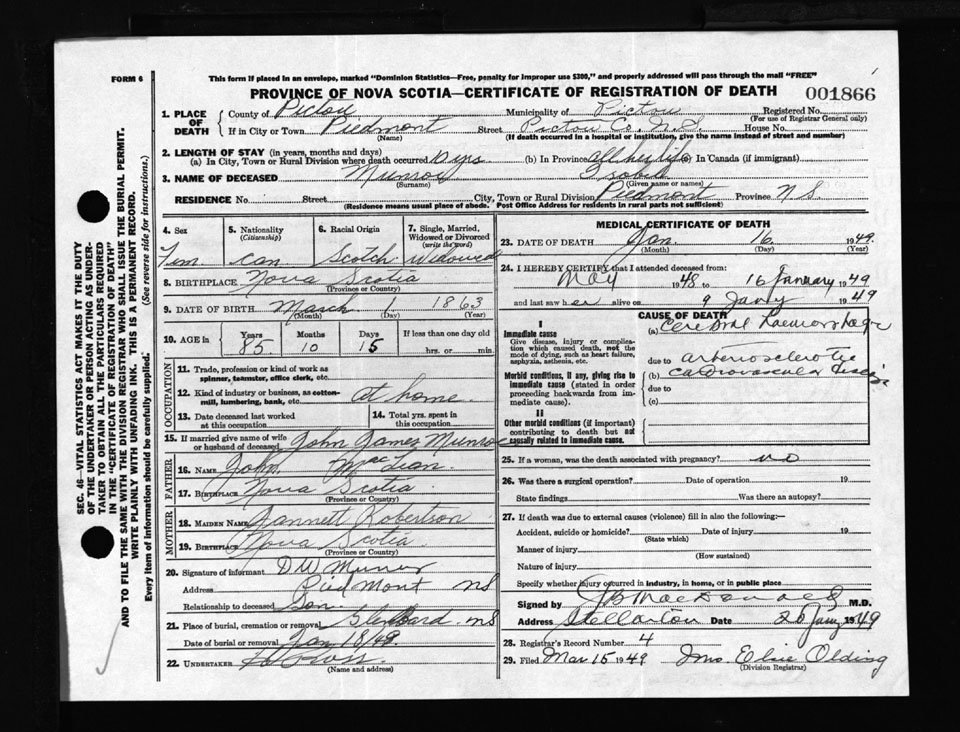 FORM 6
This form if placed in an envelope, marked "Dominion Statistics—Free, penalty for improper use $300," and properly addressed will pass through the mail "FREE"
PROVINCE OF NOVA SCOTIA—CERTIFICATE OF REGISTRATION OF DEATH 001866
1. PLACE OF DEATH County of Pictou Municipality of Pictou Registered No.
(For use of Registrar General only)
If in City or Town Piedmont Street Pictou Co. N.S. House No.
(Name) (If death occurred in a hospital or institution, give the name instead of street and number)
2. LENGTH OF STAY (in years, months and days)
(a) In City, Town or Rural Division where death occurred yrs (b) In Province all her life (c) In Canada (if immigrant)
3. NAME OF DECEASED Munroe Isobel
(Surname) (Given name or names)
RESIDENCE No. Street City, Town or Rural Division Piedmont Province N S.
(Residence means usual place of abode. Post Office Address for residents in rural parts not sufficient)
4. Sex Fem
5. Nationality (Citizenship) Can
6. Racial Origin Scotch
7. Single, Married, Widowed or Divorced (write the word) Widowed
8. BIRTHPLACE Nova Scotia
(Province or Country)
9. DATE OF BIRTH March 1 1863
(Month) (Day) (Year)
10. AGE in Years Months Days If less than one day
85 10 15 hrs. or min.
OCCUPATION
11. Trade, profession or kind of work as spinner, teamster, office clerk, etc.
12. Kind of industry or business, as cotton-mill, lumbering, bank, etc. at home.
13. Date deceased last worked at this occupation
14. Total yrs. spent in this occupation
15. If married give name of wife or husband of deceased John James Munroe
FATHER
16. NAME John MacLean
17. BIRTHPLACE Nova Scotia
(Province or Country)
MOTHER
18. MAIDEN NAME Jannett Robertson
19. BIRTHPLACE Nova Scotia
(Province or Country)
20. Signature of informant D W Munro
Address Piedmont NS
Relationship to deceased Son.
21. Place of burial, cremation or removal NS
Date of burial or removal Jan 18/49.
22. UNDERTAKER
(Name and address)
MEDICAL CERTIFICATE OF DEATH
23. DATE OF DEATH Jan. 16 1949.
(Month) (Day) (Year)
24. I HEREBY CERTIFY that I attended deceased from
May 1948 to 16 January 1949
and last saw her alive on 9 Jany 1949
CAUSE OF DEATH
I
Immediate cause
Give disease, injury or complication which caused death, not the mode of dying, such as heart failure, asphyxia, asthenia, etc.
(a) Cerebral haemorrhage
due to arteriosclerotic
Morbid conditions, if any, giving rise to immediate cause (stated in order proceeding backwards from immediate cause).
(b) cardiovascular disease
due to
(c)
II
Other morbid conditions (if important) contributing to death but not causally related to immediate cause.
25. If a woman, was the death associated with pregnancy? no
26. Was there a surgical operation? Date of operation 19
State findings Was there an autopsy?
27. If death was due to external causes (violence) fill in also the following:—
Accident, suicide or homicide? Date of injury 19
(State which)
Manner of injury
(How sustained)
Nature of injury
Specify whether injury occurred in industry, in home, or in public place
Signed by J B MacDonald M.D.
Address Stellarton Date 20 Jany 1949
28. Registrar's Record Number 4
29. Filed Mar 15 1949 Mrs. Elsie Olding
(Division Registrar)
SEC. 46—VITAL STATISTICS ACT MAKES IT THE DUTY
OF THE UNDERTAKER OR PERSON ACTING AS UNDER-
TAKER TO OBTAIN ALL THE PARTICULARS REQUIRED
IN THE "CERTIFICATE OF REGISTRATION OF DEATH"
AND TO FILE THE SAME WITH THE DIVISION REGISTRAR WHO SHALL ISSUE THE BURIAL PERMIT.
WRITE PLAINLY WITH UNFADING INK. THIS IS A PERMANENT RECORD.
Every item of information should be carefully supplied. (See reverse side for instructions.)